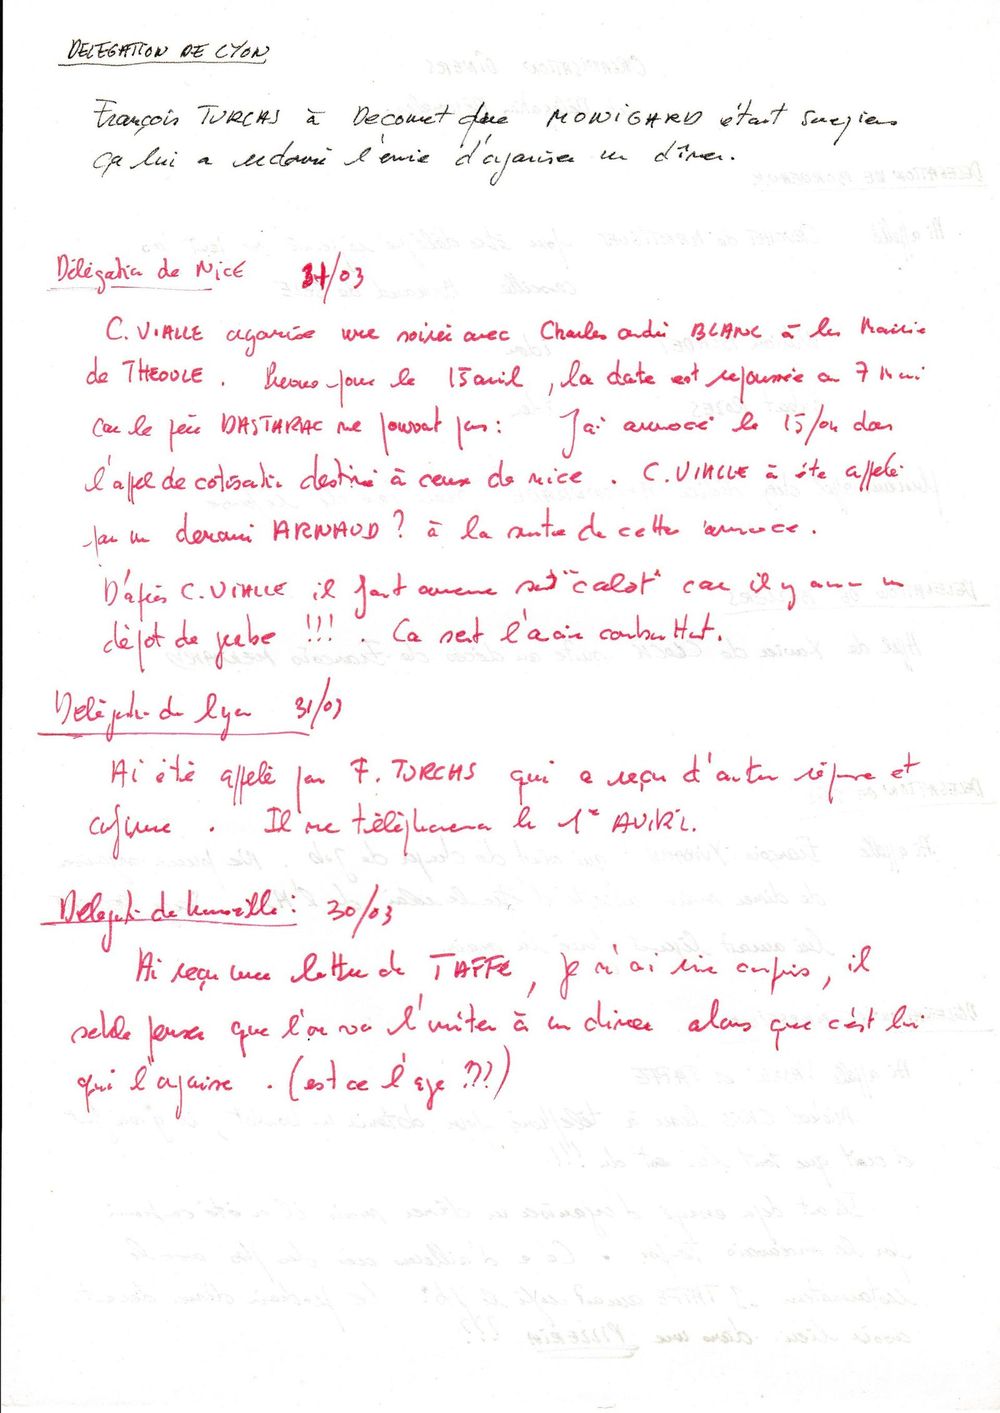 DELEGATION DE LYON
François TURCAS à Decouvert que MONIGARD était
ça lui a redonné l'envie d'organiser un dîner.
Délégation de NICE 31/03
C. VIALLE organise une soirée avec Charles andré BLANC à la Mairie
de THEOULE. Prévue pour le 15 avril, la date est repoussée au 7 Mai
car le père DASTARAC ne pouvait pas : J'ai annoncé le 15/04 dans
l'appel de cotisation destiné à ceux de nice. C. VIALLE à été appelé
par un ARNAUD ? à la suite de cette annonce.
D'après C. VIALLE il faut amener son "calot" car il y aura un
dépôt de gerbe !!! . Ca sent l'ancien combattant.
Délégation de Lyon 31/03
Ai été appelé par F. TURCAS qui a reçu d'autres réponses et
confirme. Il me téléphonera le 1er AVRIL.
Délégation de Marseille : 30/03
Ai reçu une lettre de TAFFE, Je n'ai rien compris, il
semble penser que l'on va l'inviter à un diner alors que c'est lui
qui l'organise. (est ce l'age ??!)